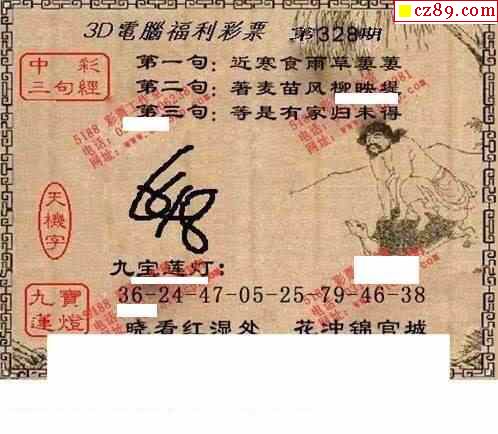 cz89.com
3D電腦福利彩票 第328期
中彩
三句經
第一句：近寒食雨草萋萋
第二句：著麦苗风柳映堤
第三句：等是有家归未得
天機字
九宝莲灯：
九寶
蓮燈
36-24-47-05-25-79-46-38
晓看红湿处 花冲锦官城